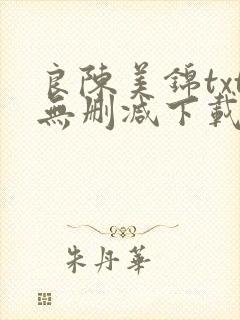 良陳美錦txt
無刪減下載
朱丹華